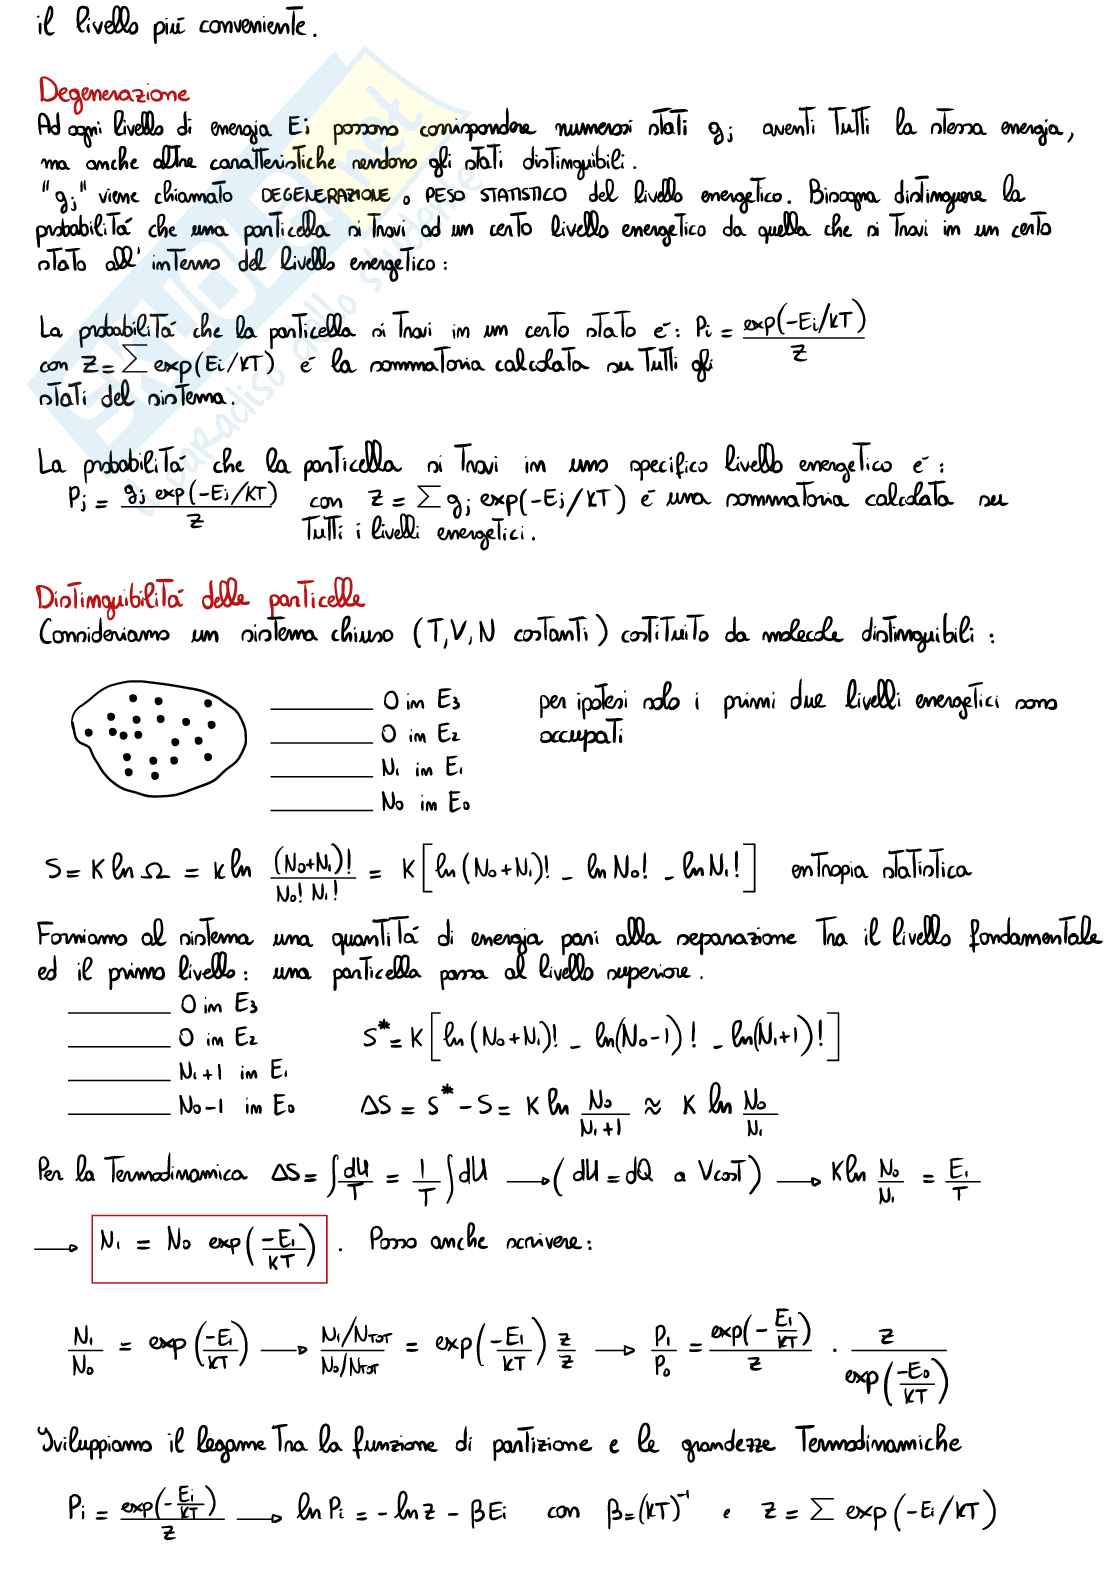 il livello piú conveniente.
Degenerazione
Ad ogni livello di energia Ej possono corrispondere numerosi stati gj aventi tutti la stessa energia,
ma anche altre caratteristiche rendono gli stati distinguibili.
"gj" viene chiamato DEGENERAZIONE o PESO STATISTICO del livello energetico. Bisogna distinguere la
probabilitá che una particella si trovi ad un certo livello energetico da quella che si trovi in un certo
stato all'interno del livello energetico:
La probabilitá che la particella si trovi in un certo stato é: Pi = exp(-Ei/KT) / Z
con Z = ∑ exp(Ei/KT) é la sommatoria calcolata su tutti gli
stati del sistema.
La probabilitá che la particella si trovi in uno specifico livello energetico é:
Pj = gj exp(-Ej/KT) / Z con Z = ∑ gj exp(-Ej/KT) é una sommatoria calcolata su
tutti i livelli energetici.
Distinguibilitá delle particelle
Consideriamo un sistema chiuso (T,V,N costanti) costituito da molecole distinguibili:
0 in E3 per ipotesi solo i primi due livelli energetici sono
0 in E2 occupati
N1 in E1
N0 in E0
S = K ln Ω = K ln (N0+N1)! / N0! N1! = K [ln (N0+N1)! - ln N0! - ln N1!] entropia statistica
Forniamo al sistema una quantitá di energia pari alla separazione tra il livello fondamentale
ed il primo livello: una particella passa al livello superiore.
0 in E3
0 in E2 S* = K [ln (N0+N1)! - ln(N0-1)! - ln(N1+1)!]
N1+1 in E1
N0-1 in E0 ΔS = S* - S = K ln N0 / N1+1 ≈ K ln N0 / N1
Per la termodinamica ΔS = ∫ dU/T = 1/T ∫ dU → (dU = dQ a Vcost) → K ln N0/N1 = E1/T
→ N1 = N0 exp(-E1/KT) . Posso anche scrivere:
N1/N0 = exp(-E1/KT) → N1/NTOT / N0/NTOT = exp(-E1/KT) Z/Z → P1/P0 = exp(-E1/KT) / Z · Z / exp(-E0/KT)
Sviluppiamo il legame tra la funzione di partizione e le grandezze termodinamiche
Pi = exp(-Ei/KT) / Z → ln Pi = - ln Z - βEi con β = (KT)⁻¹ e Z = ∑ exp(-Ei/KT)